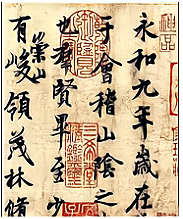 神品
永和九年歲在
于會稽山陰之
也羣賢畢至少
有崇山峻領茂林脩